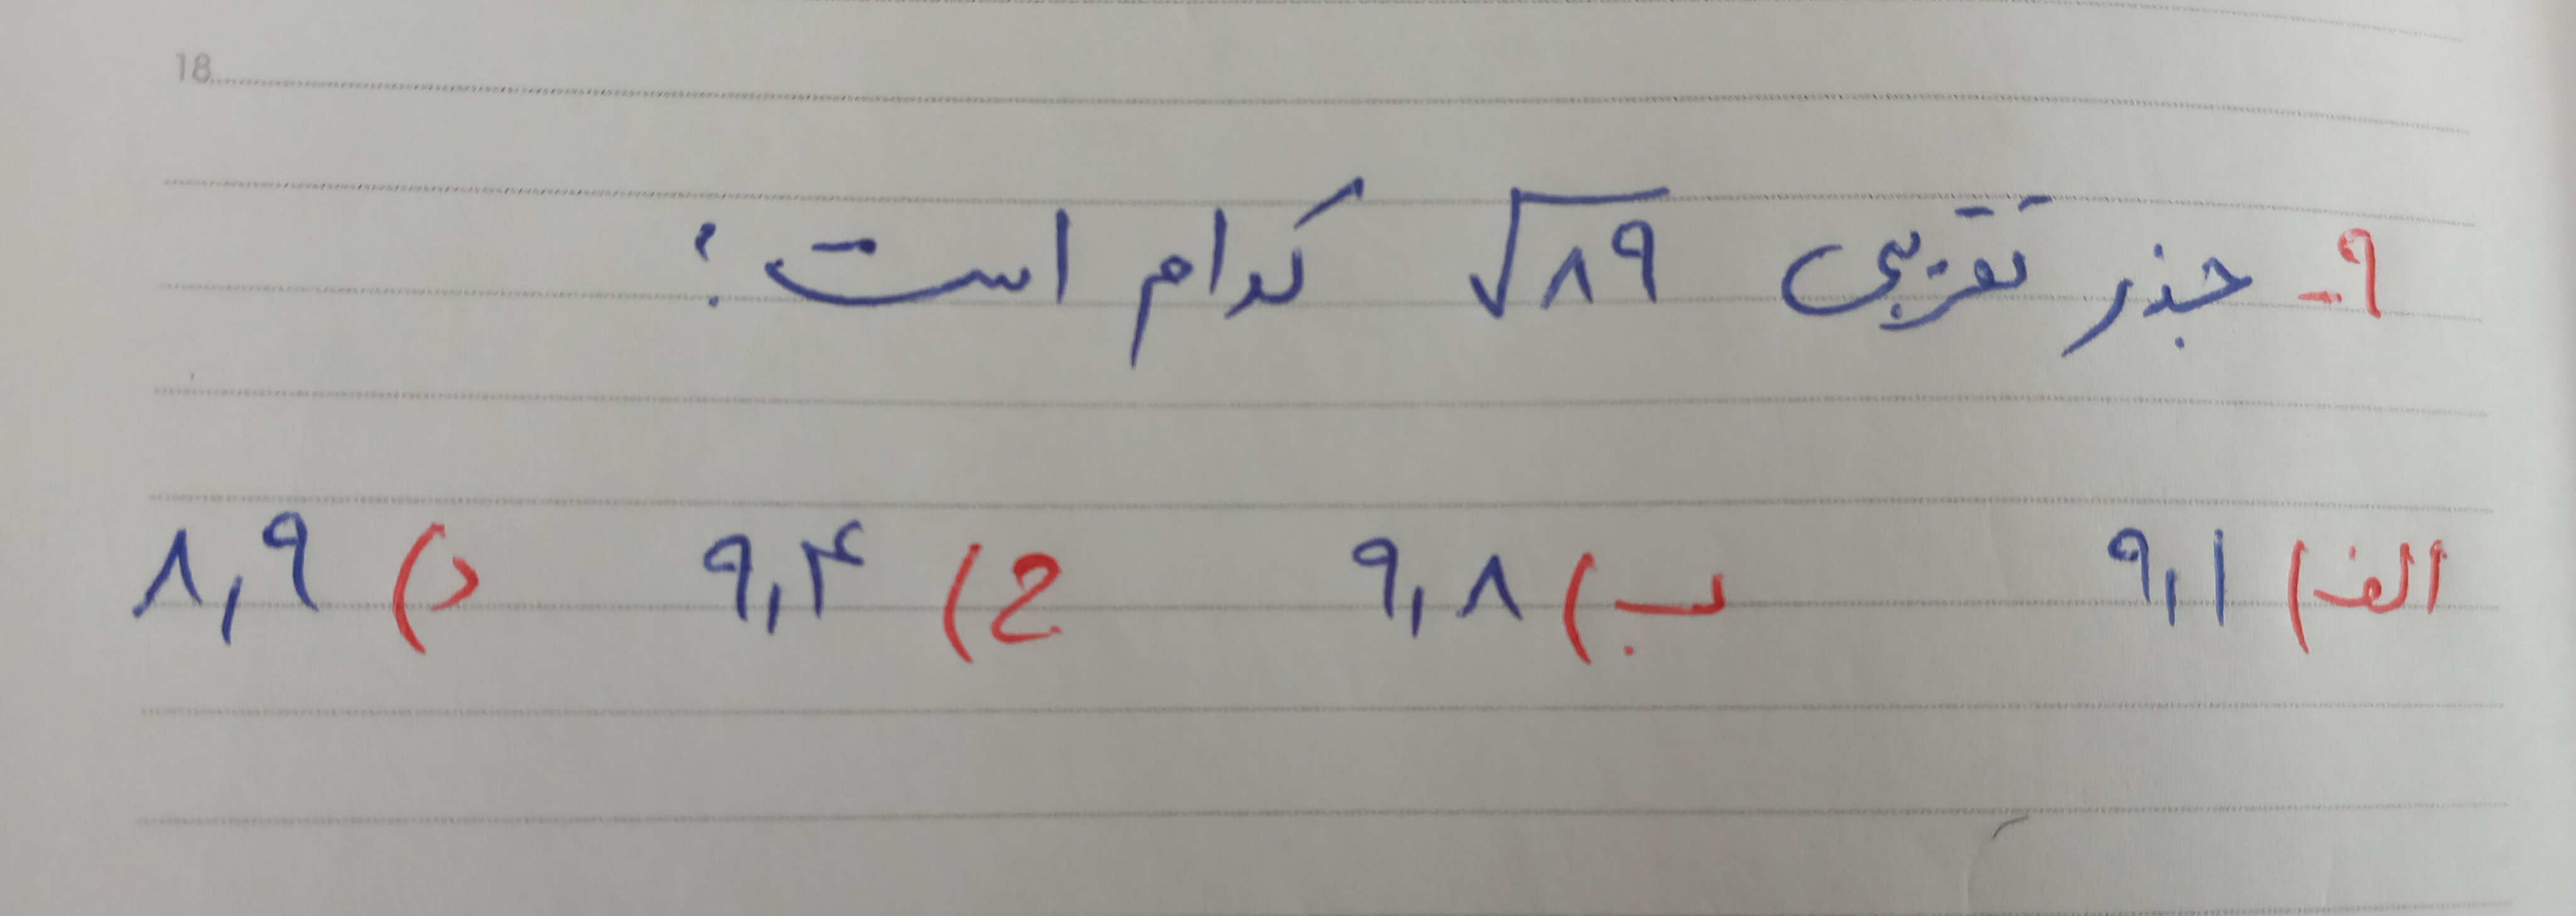 18
۹- جذر تقریبی √۸۹ کدام است:
الف) ۹,۱ ب) ۹,۸ ج) ۹,۴ د) ۸,۹